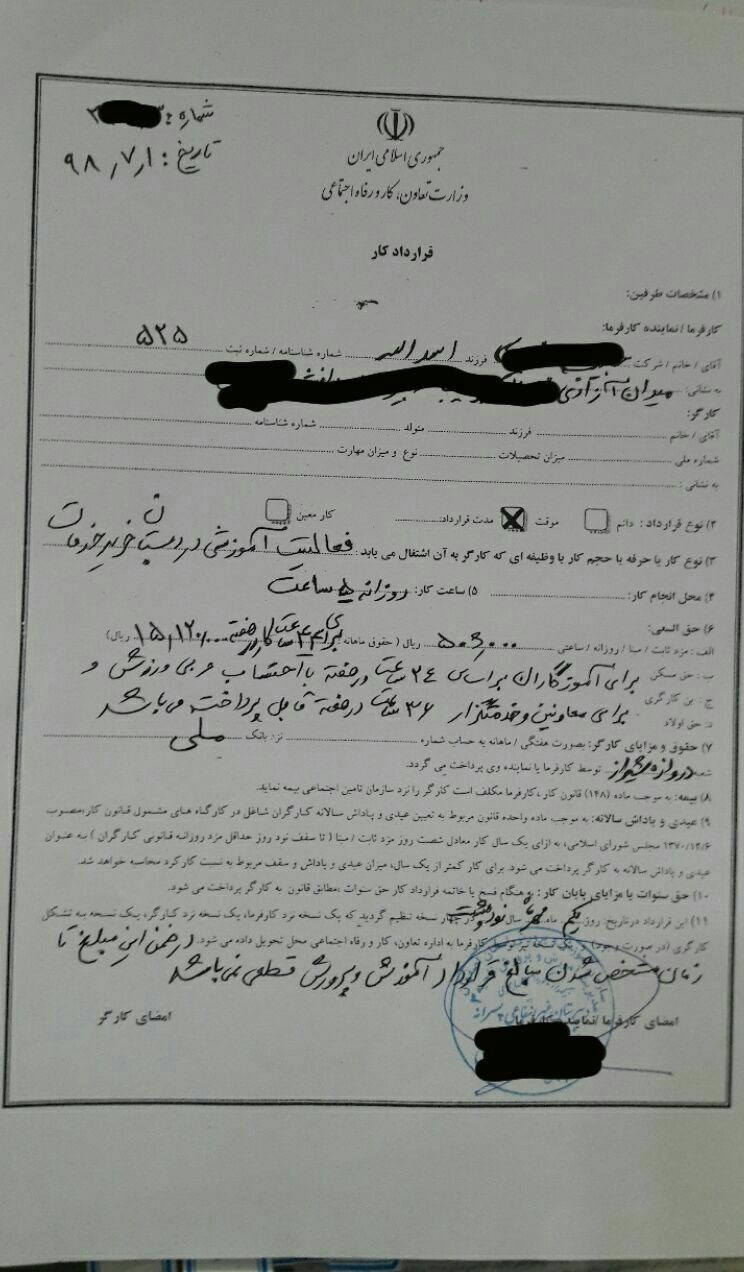 شماره:
تاریخ: ۹۸/۷/۱
جمهوری اسلامی ایران
وزارت تعاون، کار و رفاه اجتماعی
قرارداد کار
۱) مشخصات طرفین:
کارفرما / نماینده کارفرما:
آقای / خانم / شرکت فرزند اسداله شماره شناسنامه / شماره ثبت ۵۲۵
به نشانی: میدان آزادی
کارگر:
آقای / خانم فرزند متولد شماره شناسنامه
شماره ملی میزان تحصیلات نوع و میزان مهارت
به نشانی:
۲) نوع قرارداد: دائم موقت مدت قرارداد: کار معین
۳) نوع کار یا حرفه یا حجم کار یا وظیفه ای که کارگر به آن اشتغال می یابد: فعالیت آموزشی در دبستان خرید خدمات
۴) محل انجام کار: ۵) ساعت کار: روزانه ساعت
۶) حق السعی:
الف: مزد ثابت / مبنا / روزانه / ساعتی ریال (حقوق ماهانه برای ۴۴ ساعت کار در هفته ریال)
ب: حق مسکن برای آموزگاران بر اساس ۲۴ ساعت در هفته با احتساب مربی ورزش و
ج: بن کارگری برای معاونین و خدمتگزار ۳۶ ساعت در هفته قابل پرداخت می باشد
د: حق اولاد
۷) حقوق و مزایای کارگر: بصورت هفتگی / ماهانه به حساب شماره نزد بانک ملی
شعبه دروازه شیراز توسط کارفرما یا نماینده وی پرداخت می گردد.
۸) بیمه: به موجب ماده (۱۴۸) قانون کار، کارفرما مکلف است کارگر را نزد سازمان تامین اجتماعی بیمه نماید.
۹) عیدی و پاداش سالانه: به موجب ماده واحده قانون مربوط به تعیین عیدی و پاداش سالانه کارگران شاغل در کارگاه های مشمول قانون کار، مصوب
۱۳۷۰/۱۲/۶ مجلس شورای اسلامی، به ازای یک سال کار معادل شصت روز مزد ثابت / مبنا (تا سقف نود روز حداقل مزد روزانه قانونی کارگران) به عنوان
عیدی و پاداش سالانه به کارگر پرداخت می شود. برای کار کمتر از یک سال، میزان عیدی و پاداش و سقف مربوط به نسبت کارکرد محاسبه خواهد شد.
۱۰) حق سنوات یا مزایای پایان کار: به هنگام فسخ یا خاتمه قرارداد کار حق سنوات، مطابق قانون به کارگر پرداخت می شود.
۱۱) این قرارداد در تاریخ: روز یکم ماه مهر سال نود و هشت در چهار نسخه تنظیم گردید که یک نسخه نزد کارفرما، یک نسخه نزد کارگر، یک نسخه به تشکل
کارگری (در صورت وجود) و یک نسخه نیز توسط کارفرما به اداره تعاون، کار و رفاه اجتماعی محل تحویل داده می شود. در ضمن این مبلغ تا
زمان مشخص شدن مبالغ قرارداد آموزش و پرورش قطعی نمی باشد
امضای کارفرما / نماینده کارفرما امضای کارگر